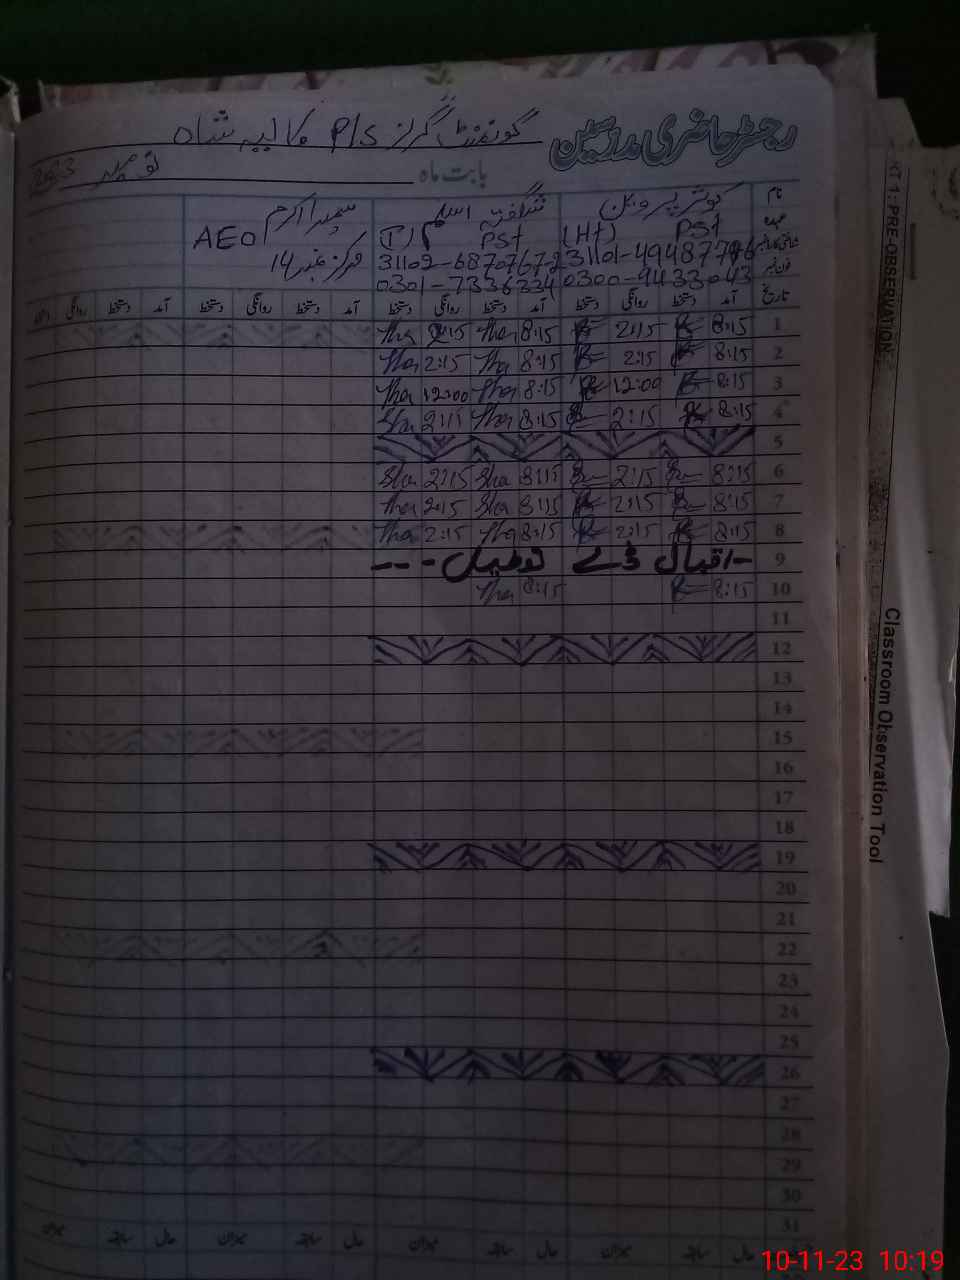 رجسٹر حاضری مدرسین گورنمنٹ گرلز P/S کالیہ شاہ
بابت ماہ نومبر 2023
نام کوثر پروین شگفتہ اسلم سمیرا اکرم
عہدہ PST (Ht) PST AEO
مرکز نمبر 14
31102-6870767-2
فون نمبر 0300-9433043 0301-7336334
تاریخ آمد دستخط روانگی دستخط آمد دستخط روانگی دستخط آمد دستخط روانگی دستخط آمد دستخط روانگی
1 8:15 2:15 8:15 2:15
2 8:15 2:15 8:15 2:15
3 8:15 12:00 8:15 12:00
4 8:15 2:15 8:15 2:15
5
6 8:15 2:15 8:15 2:15
7 8:15 2:15 8:15 2:15
8 8:15 2:15 8:15 2:15
9 -اقبال ڈے تعطیل - - -
10 8:15 8:15
11
12
13
14
15
16
17
18
19
20
21
22
23
24
25
26
27
28
29
30
31
حال سابقہ میزان حال سابقہ میزان حال سابقہ میزان حال سابقہ میزان
CT 1: PRE-OBSERVATION
Classroom Observation Tool
10-11-23 10:19